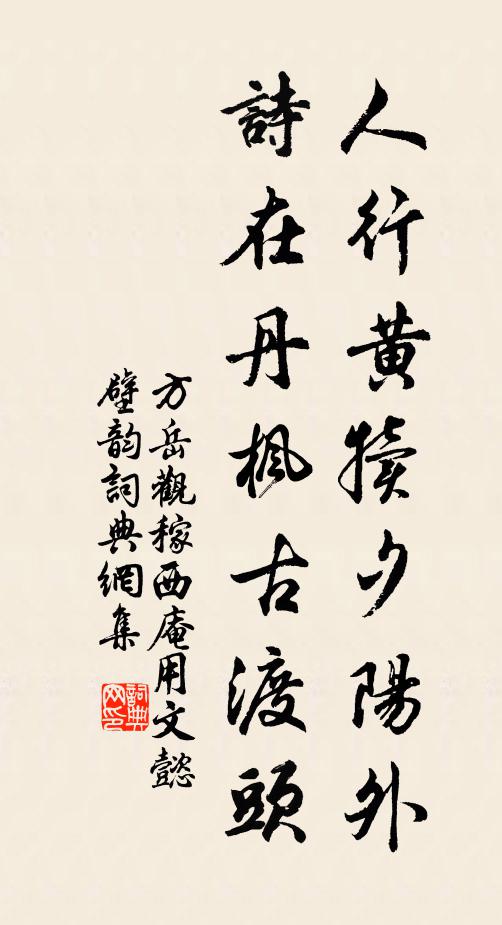 人行黃犢夕陽外
詩在丹楓古渡頭
方岳觀稼西庵用文懿
壁韵詞典網集
詞典网印